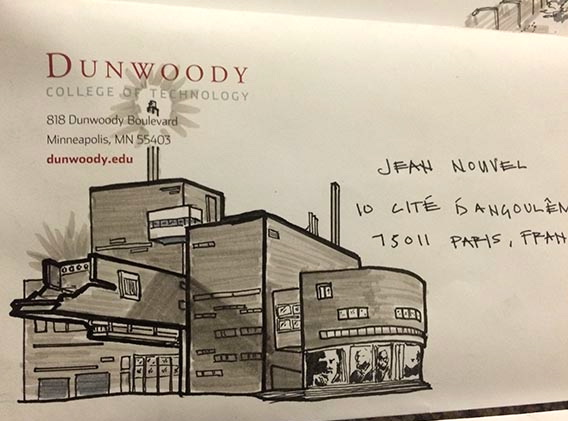 DUNWOODY
COLLEGE OF TECHNOLOGY
818 Dunwoody Boulevard
Minneapolis, MN 55403
dunwoody.edu
JEAN NOUVEL
10 CITÉ D'ANGOULÊM
75011 PARIS, FRAN